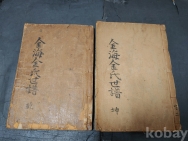 金海金氏世譜
金海金氏世譜
kobay